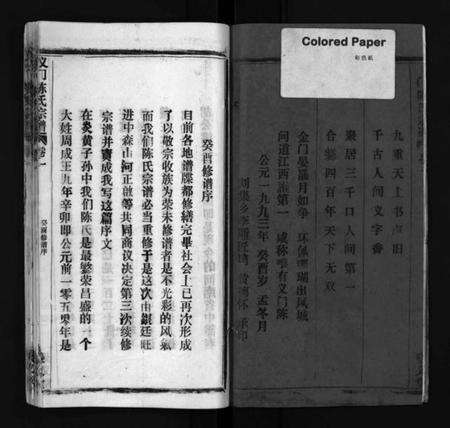 Colored Paper
彩色紙
九重天上书声旧
千古人间文字香
聚居三千口人间第一
合爨四百年天下无双
金门晏罢月如拳 环佩珊瑚出凤城
问道江西谁第一 咸称唯有义门陈
公元一九九三年癸酉岁孟冬月
癸酉修谱序
目前各地谱牒都修缮完毕社会上已再次形成
了以敬宗收族为荣未修谱者是不光彩的风氣
而我们陈氏宗谱必当重修于是这次由銀廷旺
进中森山河正敢等共同商议决定第三次续修
宗谱并嘱成我写这篇序文
在炎黄子孙中我们陈氏是最繁荣昌盛的一个
大姓周成王九年辛卯即公元前一零五零年是
义门陈氏宗谱 卷一 癸酉修谱序